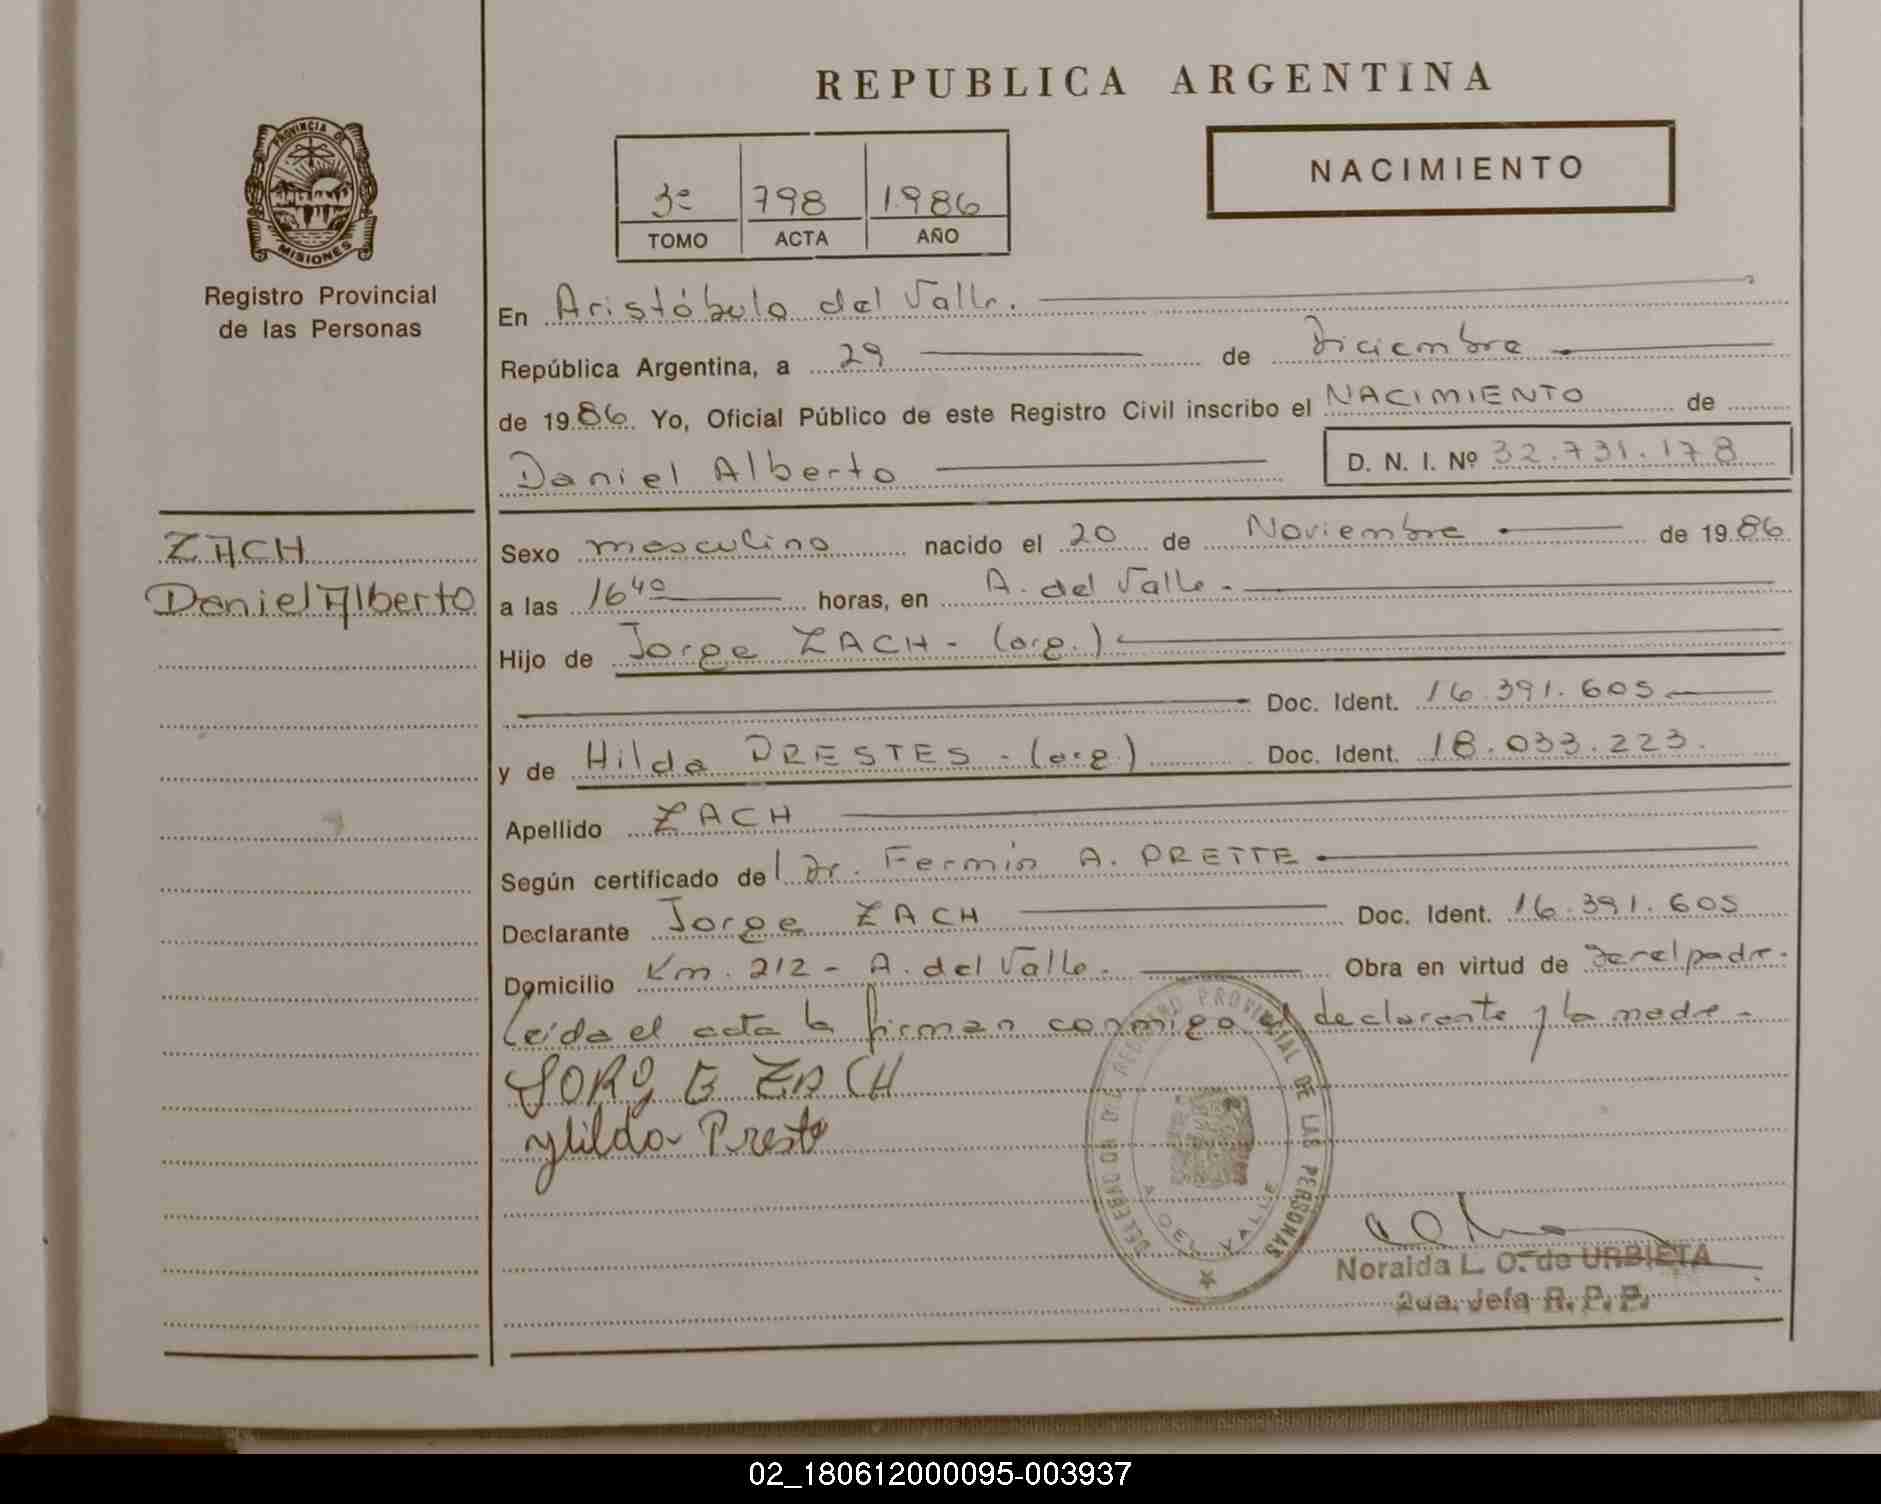 REPUBLICA ARGENTINA
PROVINCIA DE MISIONES
Registro Provincial
de las Personas
3º 798 1.986
TOMO ACTA AÑO
NACIMIENTO
En Aristóbulo del Valle.
República Argentina, a 29 de Diciembre
de 1986. Yo, Oficial Público de este Registro Civil inscribo el NACIMIENTO de
Daniel Alberto D. N. I. Nº 32.731.178
ZACH
Daniel Alberto
Sexo masculino nacido el 20 de Noviembre de 1986
a las 16⁴⁰ horas, en A. del Valle.
Hijo de Jorge ZACH - (arg.)
Doc. Ident. 16.391.605
y de Hilda PRESTES - (arg.) Doc. Ident. 18.033.223.
Apellido ZACH
Según certificado del Dr. Fermín A. PRETTE
Declarante Jorge ZACH Doc. Ident. 16.391.605
Domicilio Km. 212 - A. del Valle. Obra en virtud de ser el padre.
Leída el acta la firman conmigo el declarante y la madre.
JORGE ZACH
Hilda Preste
REGISTRO PROVINCIAL DE LAS PERSONAS
A. DEL VALLE
Noraida L. O. de URBIETA
2da. Jefa R. P. P.
02_180612000095-003937